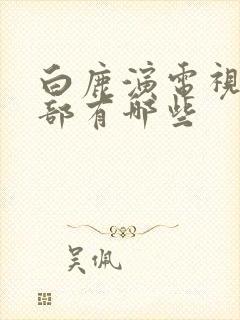 白鹿演電視
部有那些
吴佩